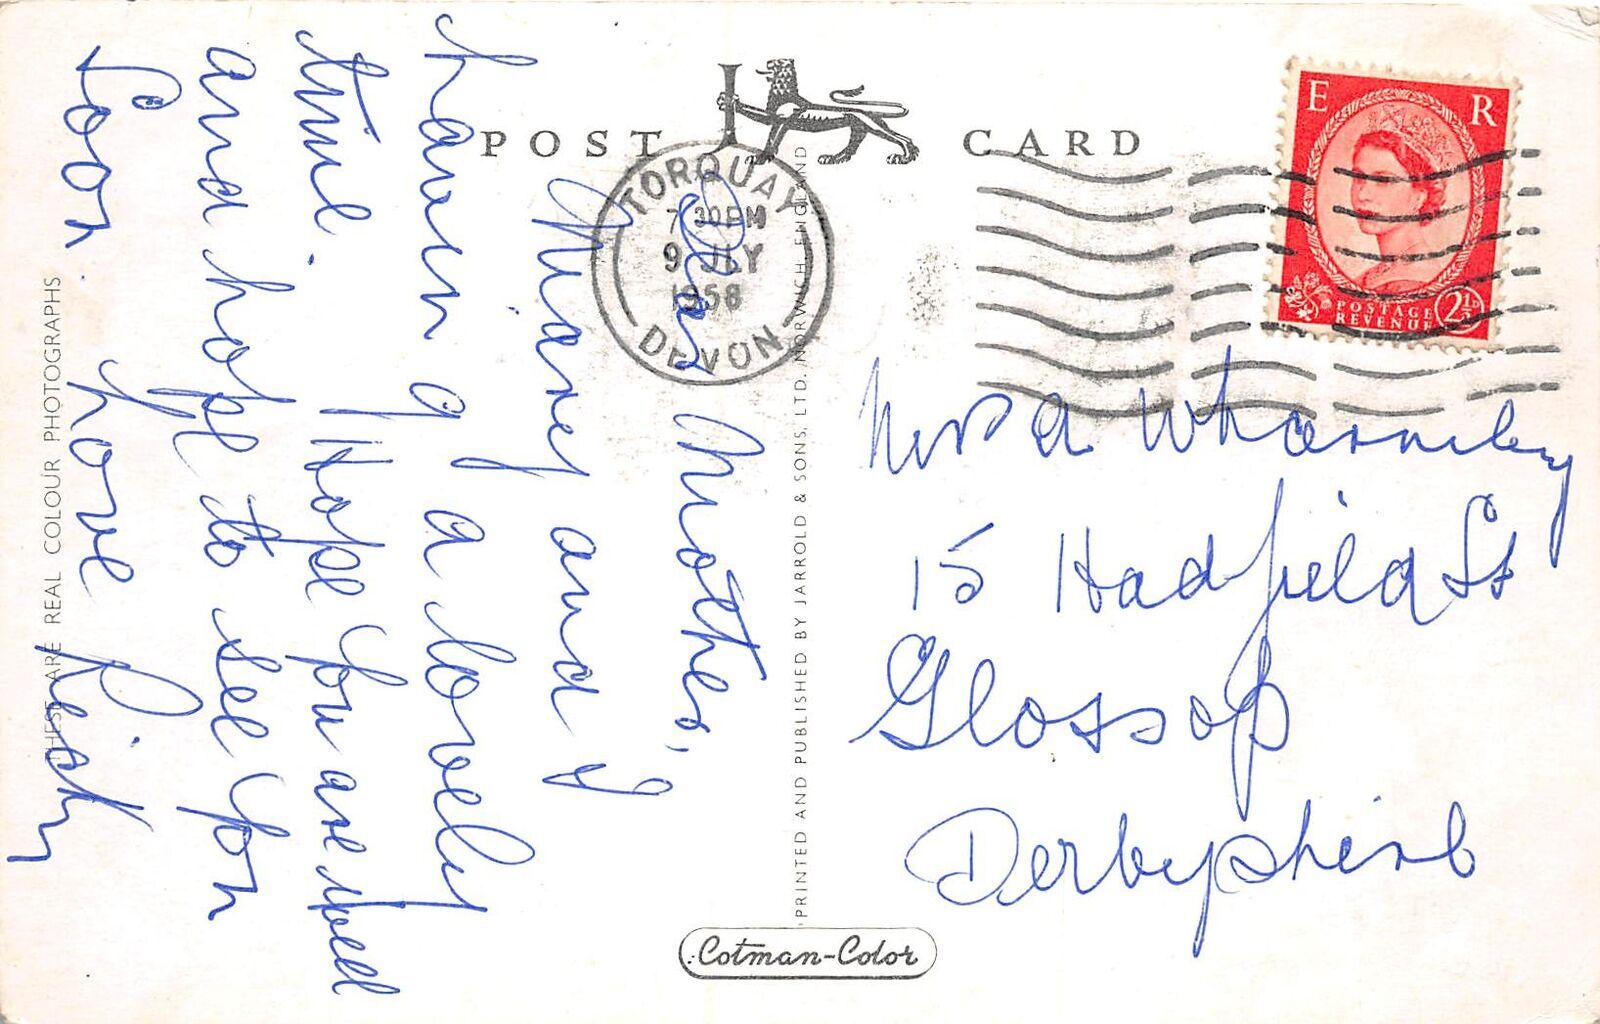 POST CARD
TORQUAY
7 30 PM
9 JLY
1958
DEVON
E R
POSTAGE
REVENUE
2½D
Dear Mother,
Marie and I
having a lovely
time. Hope you are well
and hope to see you
soon. Love
Mrs A Wharmby
15 Hadfield St
Glossop
Derbyshire
PRINTED AND PUBLISHED BY JARROLD & SONS, LTD. NORWICH, ENGLAND
THESE ARE REAL COLOUR PHOTOGRAPHS
Cotman-Color